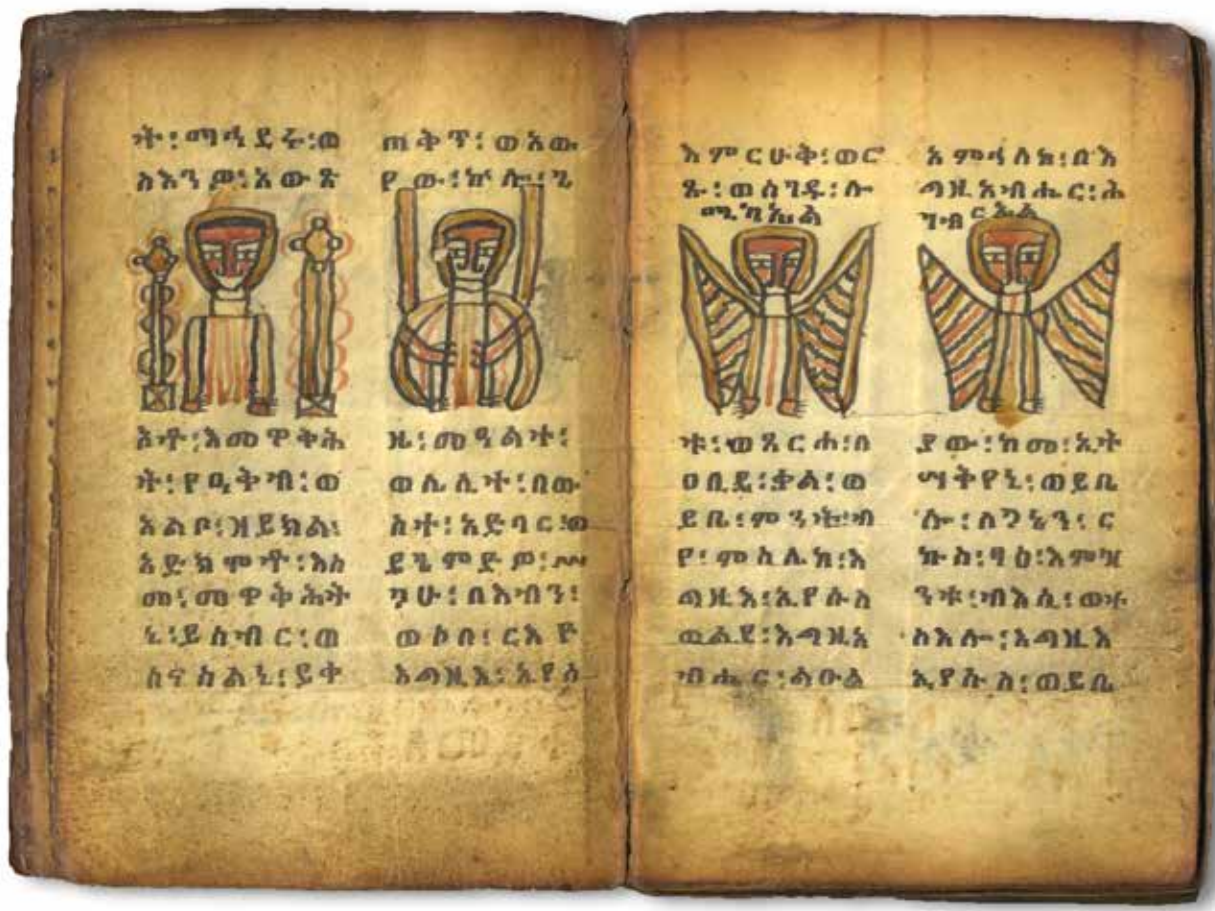 ት፡ማኅደሩ፡ወ
ሕት፡እመዋቅሕ
ት፡የዒቅብ፡ወ
አልቦ፡ዝይክል፡
አድክሞቶ፡እስ
መ፡መዋቅሕት
ኒ፡ይሰብር፡ወ
ሰናስልኒ፡ይቀ
ጠቅጥ፡ወአው
የው፡ኵሎ፡ጊ
ዜ፡መዓልተ፡
ወሌሊተ፡በው
ስተ፡አድባር፡ወ
ይጌምድዎ፡ሥ
ጋሁ፡በእብን፡
ወሶበ፡ርእዮ
እግዚእ፡ኢየሱ
እምርሁቅ፡ወሮ
ጹ፡ወሰገዱ፡ሎ
ሚካኤል
ቱ፡ወጸርሐ፡በ
ዐቢይ፡ቃል፡ወ
ይቤ፡ምንት፡ብ
የ፡ምስሌከ፡እ
ግዚእ፡ኢየሱስ
ወልደ፡እግዚአ
ብሔር፡ልዑል
አምኅለከ፡በእ
ግዚአብሔር፡ሕ
ገብርኤል
ያው፡ከመ፡ኢት
ሣቅየኒ፡ወይቤ
ሎ፡ለጋኔን፡ር
ኩስ፡ፃዕ፡እምዝ
ንቱ፡ብእሲ፡ወተ
ስእሎ፡እግዚእ
ኢየሱስ፡ወይቤ